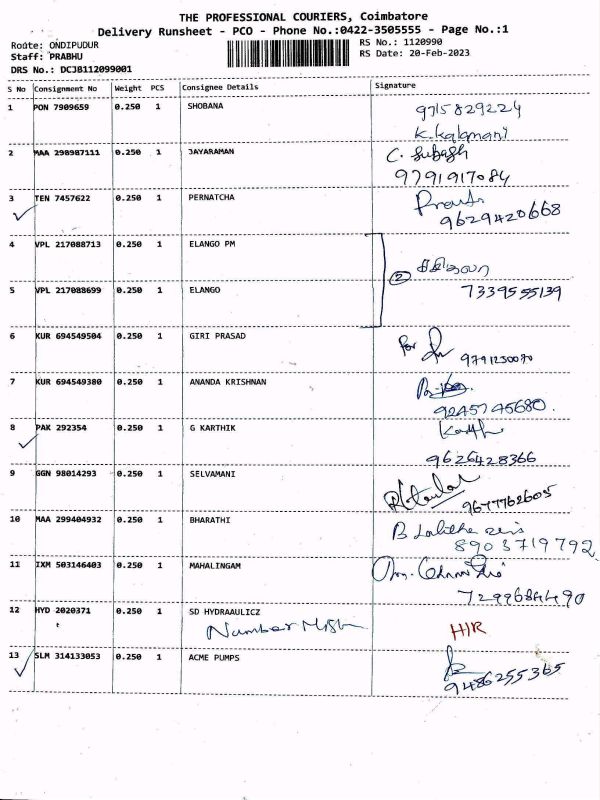 THE PROFESSIONAL COURIERS, Coimbatore
Delivery Runsheet - PCO - Phone No.:0422-3505555 - Page No.:1
Route: ONDIPUDUR RS No.: 1120990
Staff: PRABHU RS Date: 20-Feb-2023
DRS No.: DCJB112099001
S No Consignment No Weight PCS Consignee Details Signature
1 PON 7909659 0.250 1 SHOBANA 9715829224
K. Kalamani
2 MAA 298987111 0.250 1 JAYARAMAN C. Subash
9791917084
3 TEN 7457622 0.250 1 PERNATCHA
9629420668
4 VPL 217088713 0.250 1 ELANGO PM
2
5 VPL 217088699 0.250 1 ELANGO 7339555139
6 KUR 694549504 0.250 1 GIRI PRASAD For
9791230070
7 KUR 694549380 0.250 1 ANANDA KRISHNAN
9245745680.
8 PAK 292354 0.250 1 G KARTHIK
9626428366
9 GGN 98014293 0.250 1 SELVAMANI
9677762605
10 MAA 299404932 0.250 1 BHARATHI B
8903719792
11 IXM 503146403 0.250 1 MAHALINGAM
7299684490
12 HYD 2020371 0.250 1 SD HYDRAAULICZ
t Number H/R
13 SLM 314133053 0.250 1 ACME PUMPS
9486255365